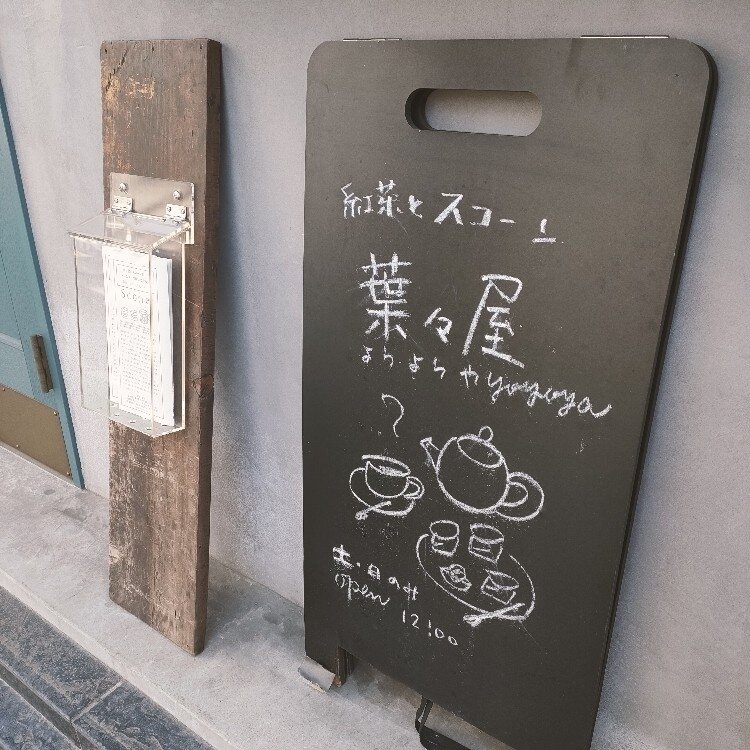 紅茶とスコーン
葉々屋
ようようや yoyoya
土・日のみ
Open 12:00